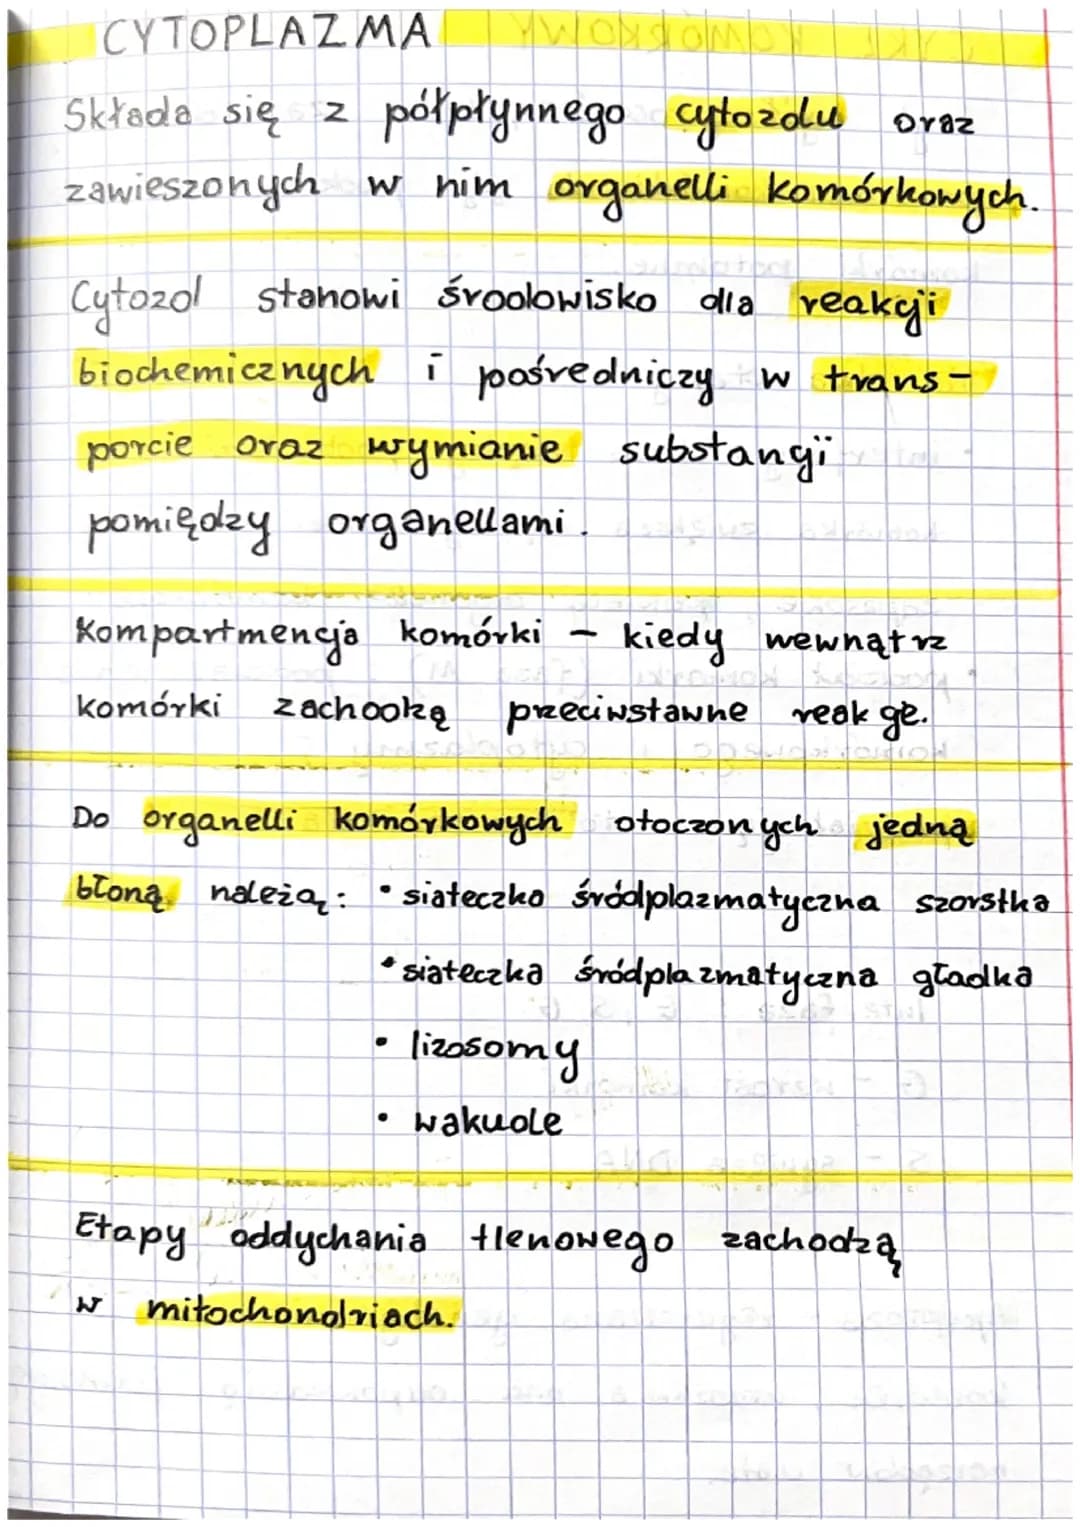 CYTOPLAZMA
Składa się z półpłynnego cytozolu oraz
zawieszonych w nim organelli komórkowych.
Cytozol stanowi środowisko dla reakcji
biochemicznych i pośredniczy w trans-
porcie oraz wymianie substancji
pomiędzy organellami.
Kompartmencja komórki - kiedy wewnątrz
komórki zachodzą przeciwstawne reakcje.
Do organelli komórkowych otoczonych jedną
błoną należą: • siateczka śródplazmatyczna szorstka
• siateczka śródplazmatyczna gładka
• lizosomy
• wakuole
Etapy oddychania tlenowego zachodzą
w mitochondriach.